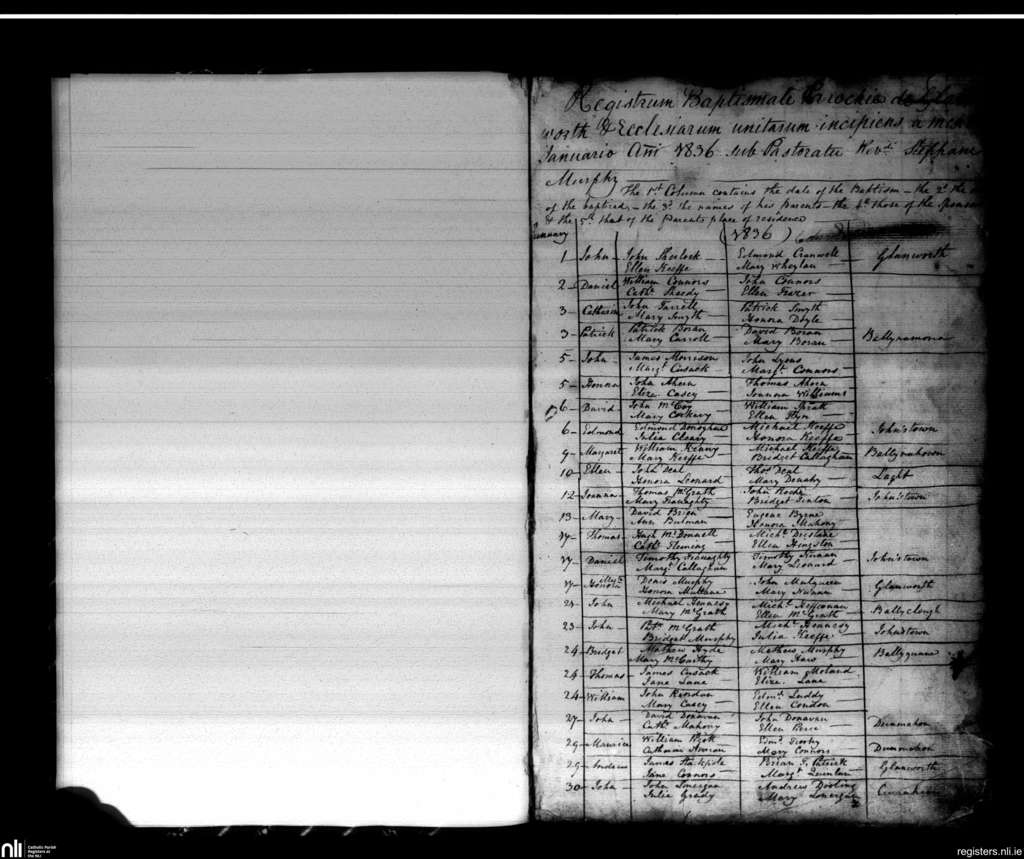 Registrum Baptismale Parochiae de Glan
worth & Ecclesiarum unitarum incipiens a mense
Januario Anni 1836 sub Pastoratu Revdi Stephani
Murphy
The 1st Column contains the date of the Baptism – the 2d the
of the baptized, – the 3d the names of his parents – the 4th those of the sponsors
& the 5th that of the Parents place of residence
January (1836)
1 – John – John Sherlock Edmond Cranwell Glanworth
Ellen Keeffe Mary Whelan
2 – Daniel William Connors John Connors
Cathe. Ellen
3 – Catharine John Farrell Patrick Smyth
Mary Smyth Honora Doyle
3 – Patrick Patrick Boran David Boran Ballynamona
Mary Carroll Mary Boran
5 – John – James Morrison John Lyons
Margt Cusack Margt. Connors
5 – Honora John Ahern Thomas Ahern
Eliza Casey Joanna Williams
6 – David John McCoy William
Mary Corkery Ellen
6 – Edmond Edmond Donoghue Michael Keeffe John'stown
Julia Cleary Honora Keeffe
9 – Margaret William Henry Michael Keeffe Ballynahown
Mary Keeffe Bridget Callaghan
10 – Ellen – John Deal Thos Deal Laght
Honora Leonard Mary
12 – Joanna Thomas McGrath John Roche John'stown
Mary Fraughty Bridget Fenton
13 – Mary – David Brien Eugene Byrne
Ann Bulman Honora Mahony
17 – Thomas Hugh McDonnell Michl.
Cathe. Fleming Ellen Hengston
17 – Daniel Timothy Fraughty Timothy Nunan John'stown
Margt Callaghan Mary Leonard
17 – Honora illegt. Denis Murphy John Mulqueen Glanworth
Honora Mullane Mary Nunan
21 – John Michael Hennessy Michl. Heffernan Ballyclough
Mary McGrath Ellen McGrath
23 – John – Patk. McGrath Michl. Hennessy John'stown
Bridget Murphy Julia Keeffe
24 – Bridget Mathew Hyde Mathew Murphy
Mary McCarthy Mary Haw
24 – Thomas James Cusack William
Jane Lane Eliza. Lane
24 – William John Riordan Edmd. Luddy
Mary Casey Ellen Condon
27 – John – David Donovan John Donavan Dunmahon
Cathe. Mahony Ellen Pierce
29 – Maurice William Edmd. Dunmahon
Catharine Mary Connors
29 – Andrew James Stackpole Brian F. Patrick Glanworth
Jane Connors Margt Quinlan
30 – John – John Lonergan Andrew Dooling
Julia Grady Mary Lonergan
nli
Catholic Parish
Registers at
the NLI
registers.nli.ie